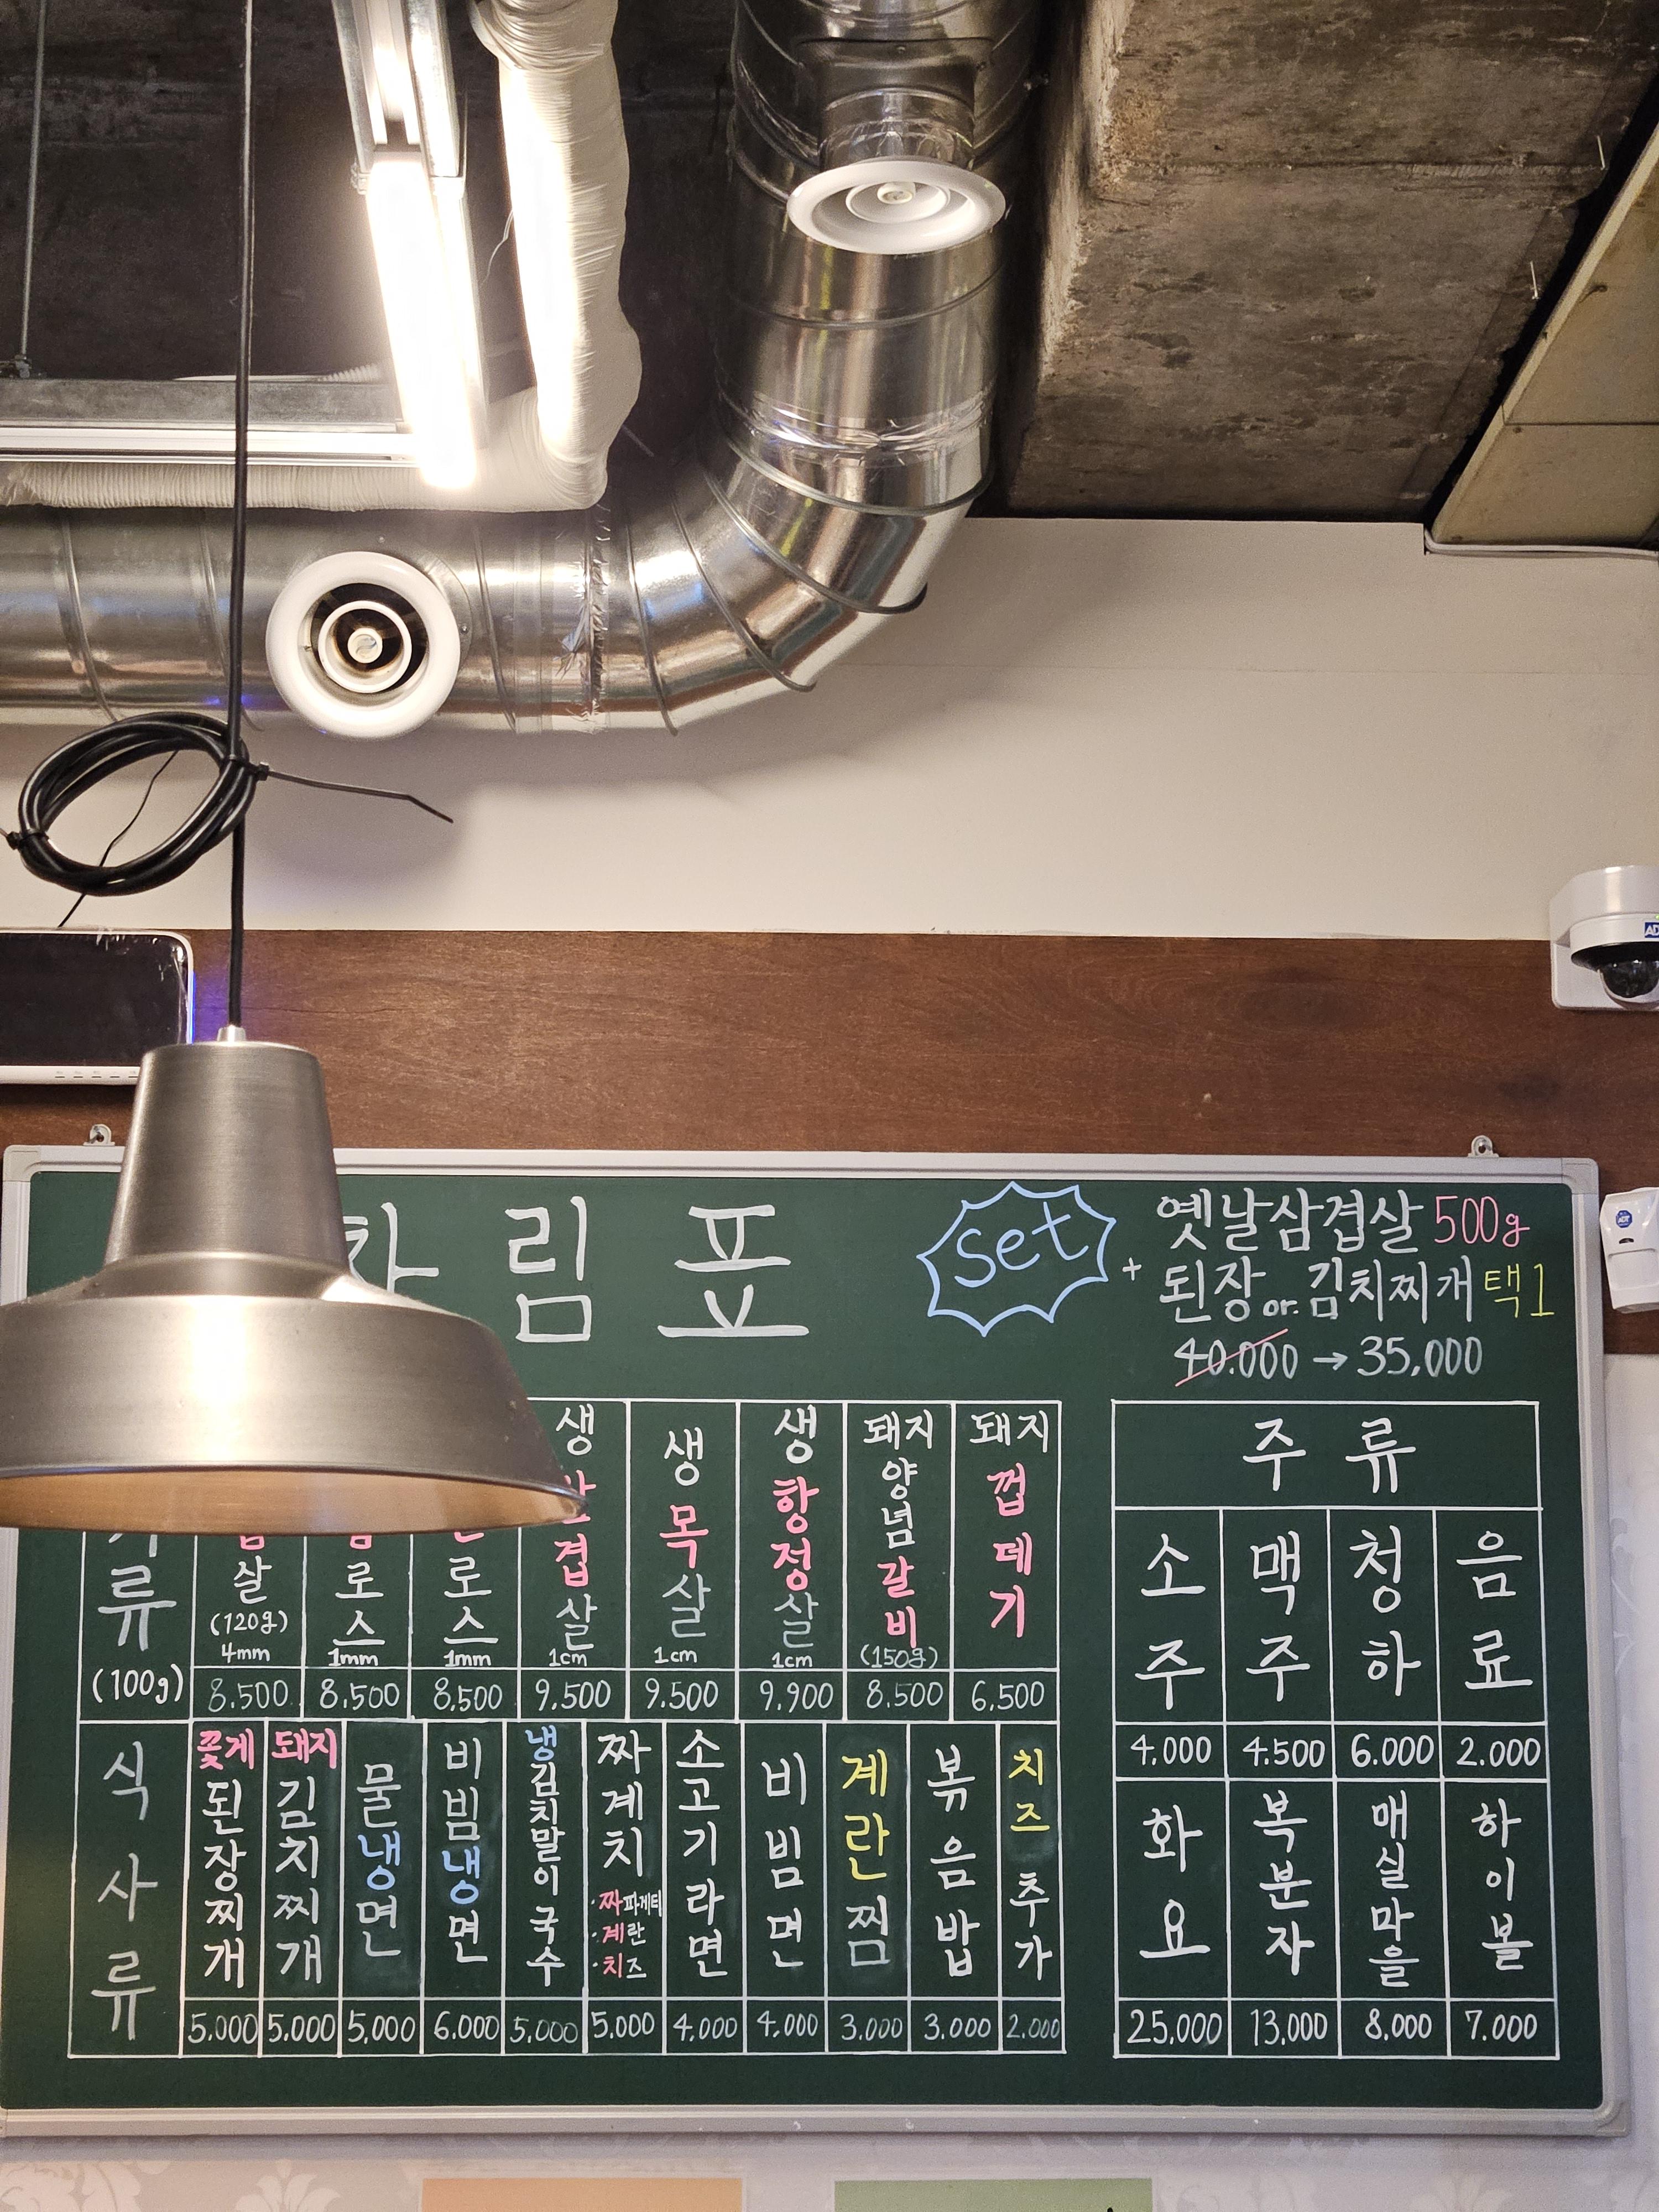 림표
set
+ 옛날삼겹살 500g
된장 or. 김치찌개 택1
40.000 → 35,000
류
(100g)
살
(120g)
4mm
8.500
로스
1mm
8,500
로스
1mm
8,500
생
겹살
1cm
9.500
생목살
1cm
9.500
생항정살
1cm
9,900
돼지양념갈비
(150g)
8.500
돼지껍데기
6,500
식사류
꽃게된장찌개
5.000
돼지김치찌개
5.000
물냉면
5,000
비빔냉면
6.000
냉김치말이국수
5,000
짜계치
·짜파게티
·계란
·치즈
5.000
소고기라면
4,000
비빔면
4,000
계란찜
3.000
볶음밥
3.000
치즈추가
2.000
주류
소주
4,000
맥주
4.500
청하
6.000
음료
2.000
화요
25,000
복분자
13,000
매실마을
8,000
하이볼
7.000
ADT